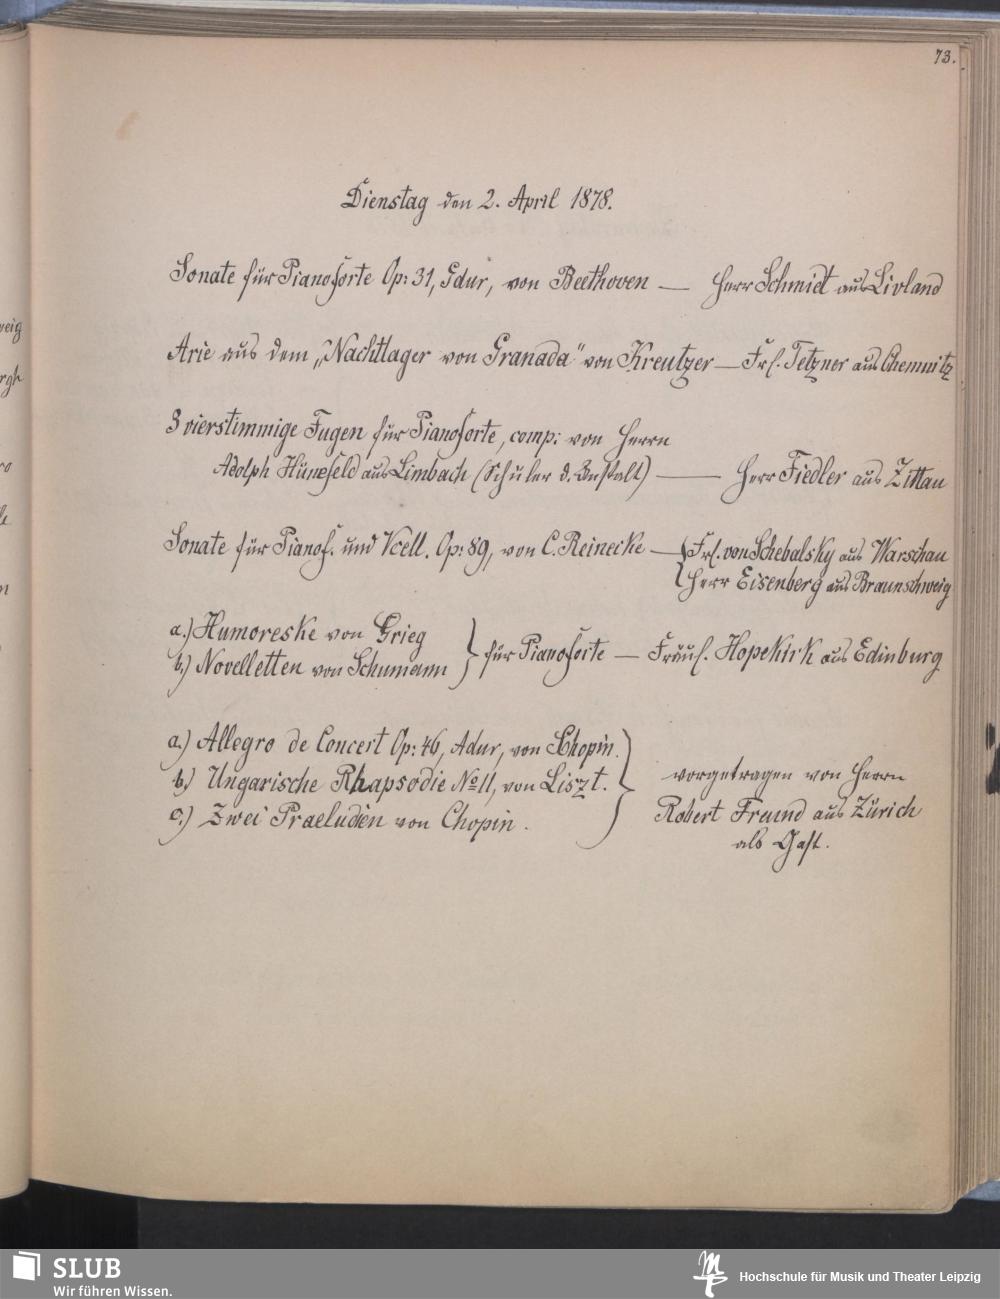 73.
Dienstag den 2. April 1878.
Sonate für Pianoforte Op: 31, Gdur, von Beethoven — Herr Schmidt aus Livland
Arie aus dem „Nachtlager von Granada" von Kreutzer — Frl. Tetzner aus Chemnitz
3 vierstimmige Fugen für Pianoforte, comp: von Herrn
Adolph Hünefeld aus Limbach (Schüler d. Anstalt) — Herr Fiedler aus Zittau
Sonate für Pianof. und Vcell. Op: 89, von C. Reinecke — Frl. von Schebalsky aus Warschau
Herr Eisenberg aus Braunschweig
a.) Humoreske von Grieg
b.) Novelletten von Schumann } für Pianoforte — Fräul. Hopekirk aus Edinburg
a.) Allegro de Concert Op: 46, Adur, von Chopin.
b.) Ungarische Rhapsodie No 11, von Liszt.
c.) Zwei Praeludien von Chopin.
vorgetragen von Herrn
Robert Freund aus Zürich
als Gast.
SLUB
Wir führen Wissen.
Hochschule für Musik und Theater Leipzig